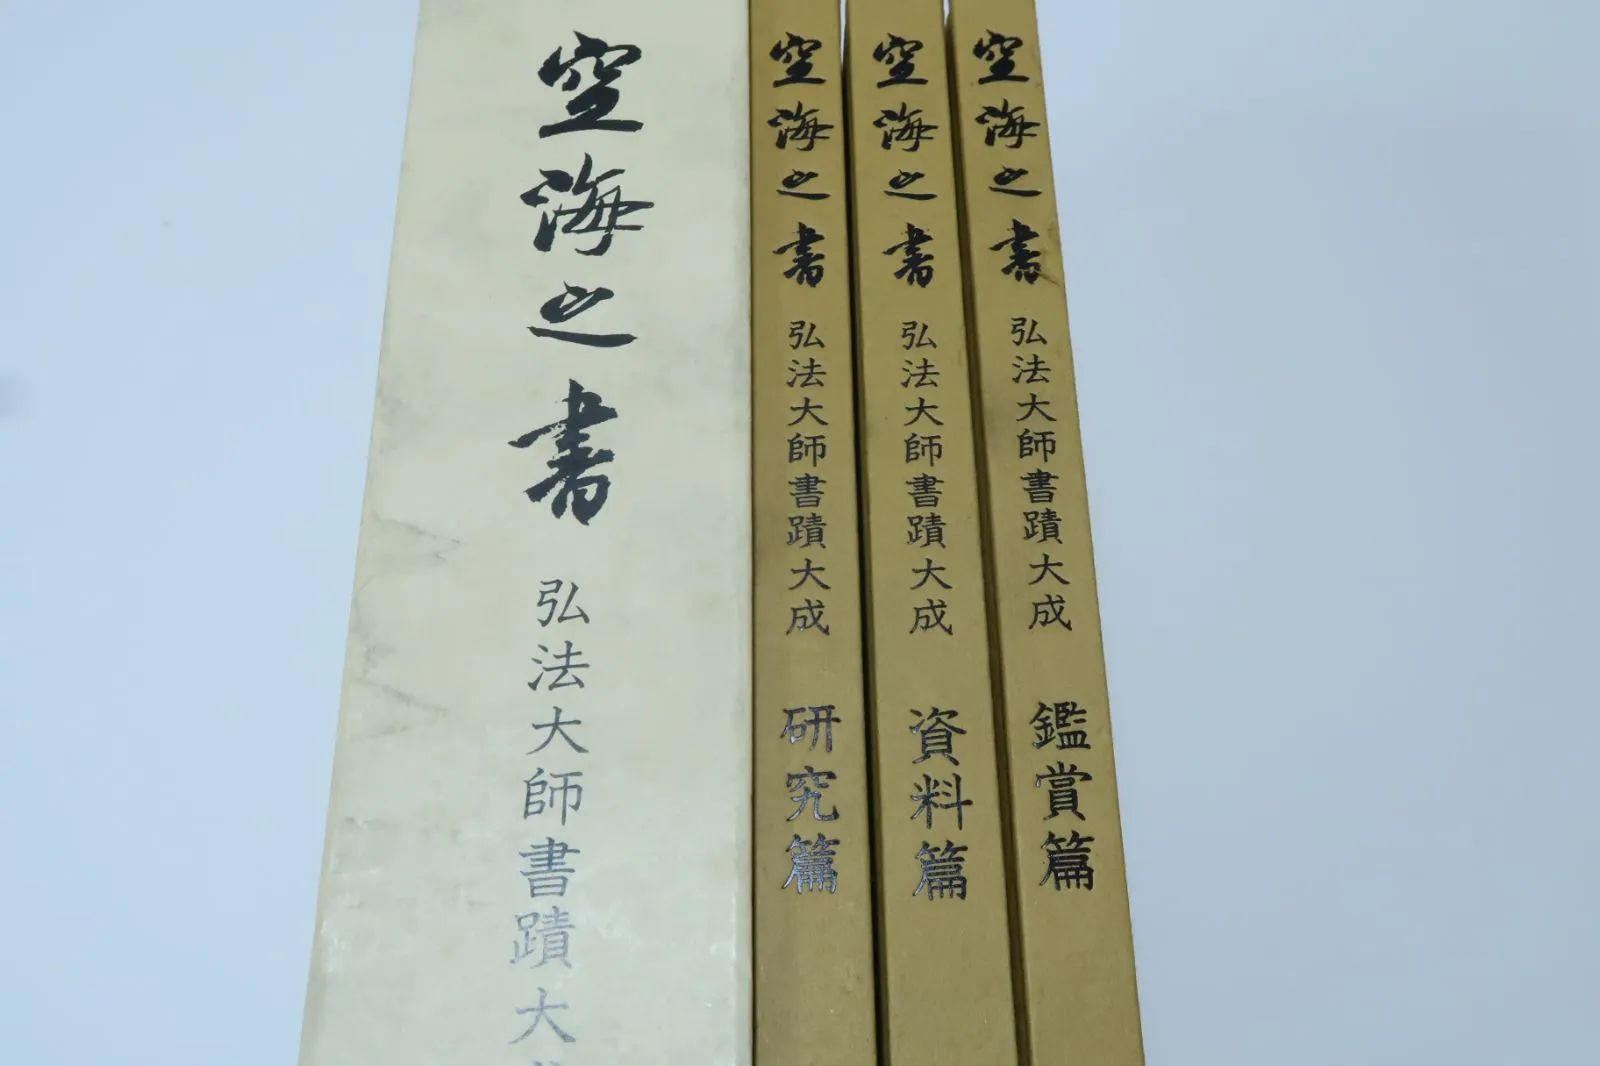 空海之書 弘法大師書蹟大
空海之書 弘法大師書蹟大成 研究篇
空海之書 弘法大師書蹟大成 資料篇
空海之書 弘法大師書蹟大成 鑑賞篇